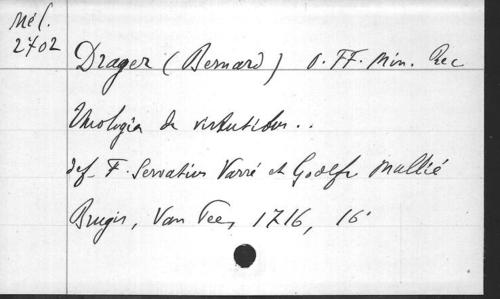 Mél.
2702
Drager (Bernard) O. FF. Min. Rec
Theologia de virtutibus..
def F. Servatius Varré et Godefr Mallié
Brugis, Van Pee, 1716, 16°